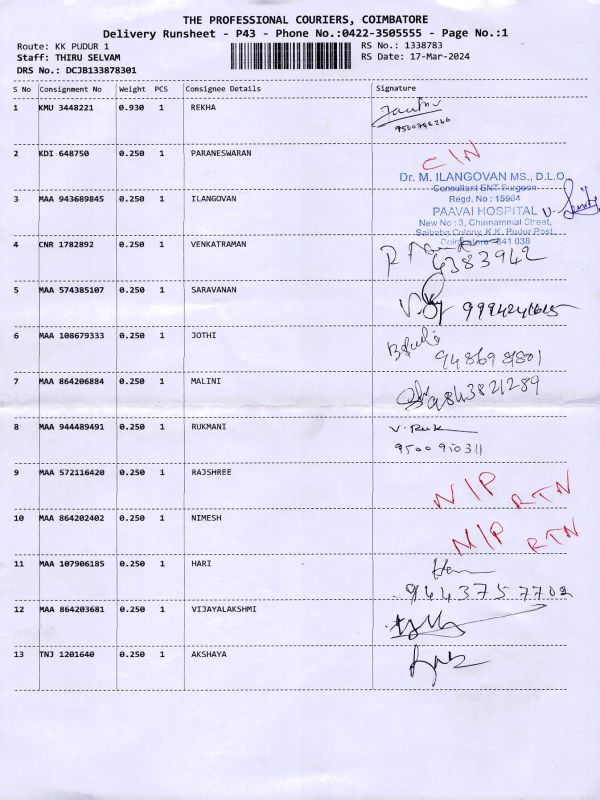 THE PROFESSIONAL COURIERS, COIMBATORE
Delivery Runsheet - P43 - Phone No.:0422-3505555 - Page No.:1
Route: KK PUDUR 1 RS No.: 1338783
Staff: THIRU SELVAM RS Date: 17-Mar-2024
DRS No.: DCJB133878301
S No Consignment No Weight PCS Consignee Details Signature
1 KMU 3448221 0.930 1 REKHA
2 KDI 648750 0.250 1 PARANESWARAN C/N
Dr. M. ILANGOVAN MS., D.L.O.,
Consultant ENT Surgeon
3 MAA 943689845 0.250 1 ILANGOVAN Regd. No : 15964
PAAVAI HOSPITAL
New No : 3, Chinnammal Street,
Saibaba Colony, K.K. Pudur Post,
4 CNR 1782892 0.250 1 VENKATRAMAN Coimbatore - 641 038
6383942
5 MAA 574385107 0.250 1 SARAVANAN
6 MAA 108679333 0.250 1 JOTHI
7 MAA 864206884 0.250 1 MALINI 9843821289
8 MAA 944489491 0.250 1 RUKMANI V. Ruk
9500950311
9 MAA 572116420 0.250 1 RAJSHREE N/P RTN
10 MAA 864202402 0.250 1 NIMESH N/P RTN
11 MAA 107906185 0.250 1 HARI
9443757702
12 MAA 864203681 0.250 1 VIJAYALAKSHMI
13 TNJ 1201640 0.250 1 AKSHAYA